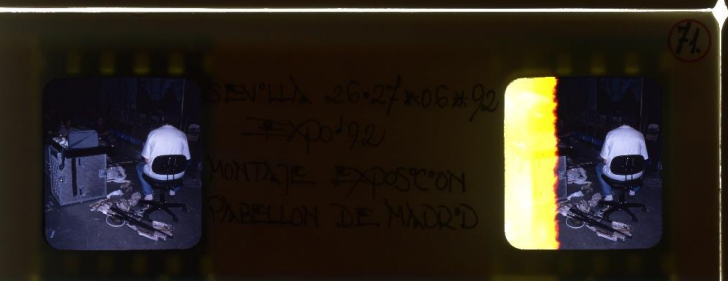 71.
SEVILLA 26·27*06*92
EXPO'92
MONTAJE EXPOSICION
PABELLON DE MADRID